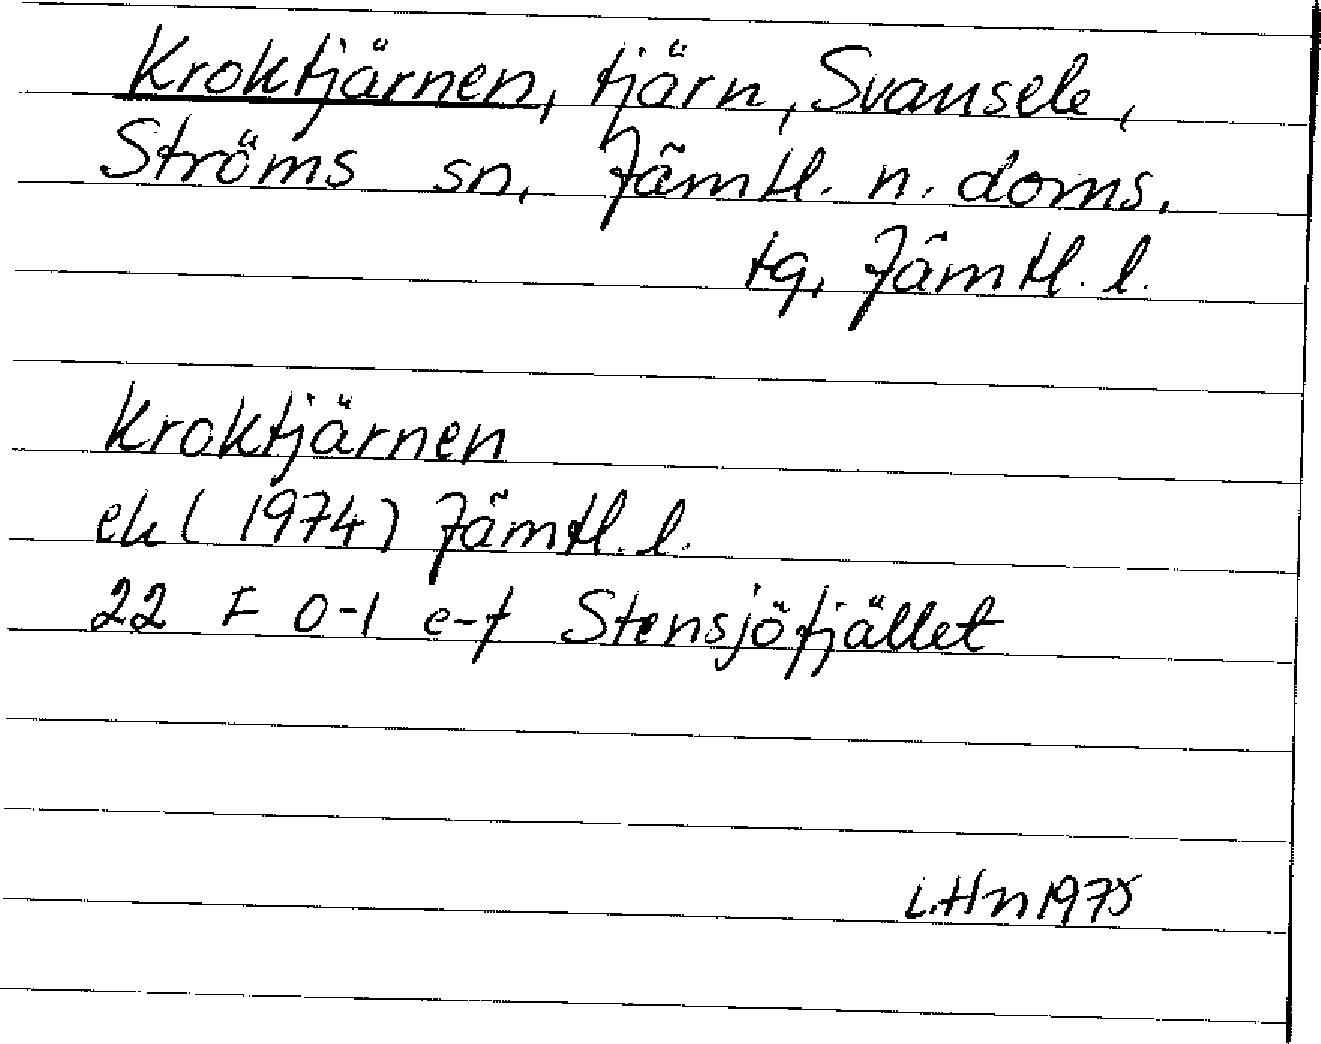 Kroktjärnen, tjärn, Svansele,
Ströms sn, Jämtl. n. doms.
tg, Jämtl. l.
Kroktjärnen
ek (1974) Jämtl. l.
22 F 0-1 e-f Stensjöfjället
L.Hn 1975